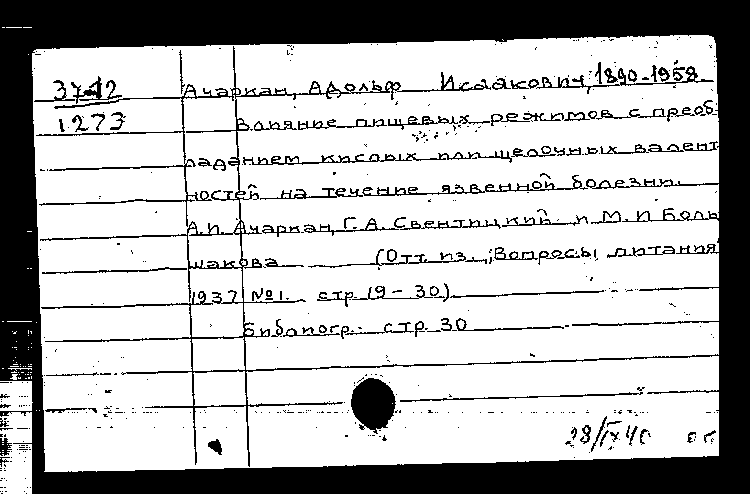 37-12 Ачаркан, Адольф Исаакович, 1890-1958.
1273 Влияние пищевых режимов с преоб-
ладанием кислых или щелочных валент
ностей на течение язвенной болезни.
А.И. Ачаркан, Г.А. Свентицкий и М.И Боль
шакова (Отт. из. „Вопросы питания"
1937 №1. стр 19-30)
Библиогр.: стр. 30
28/IX 40